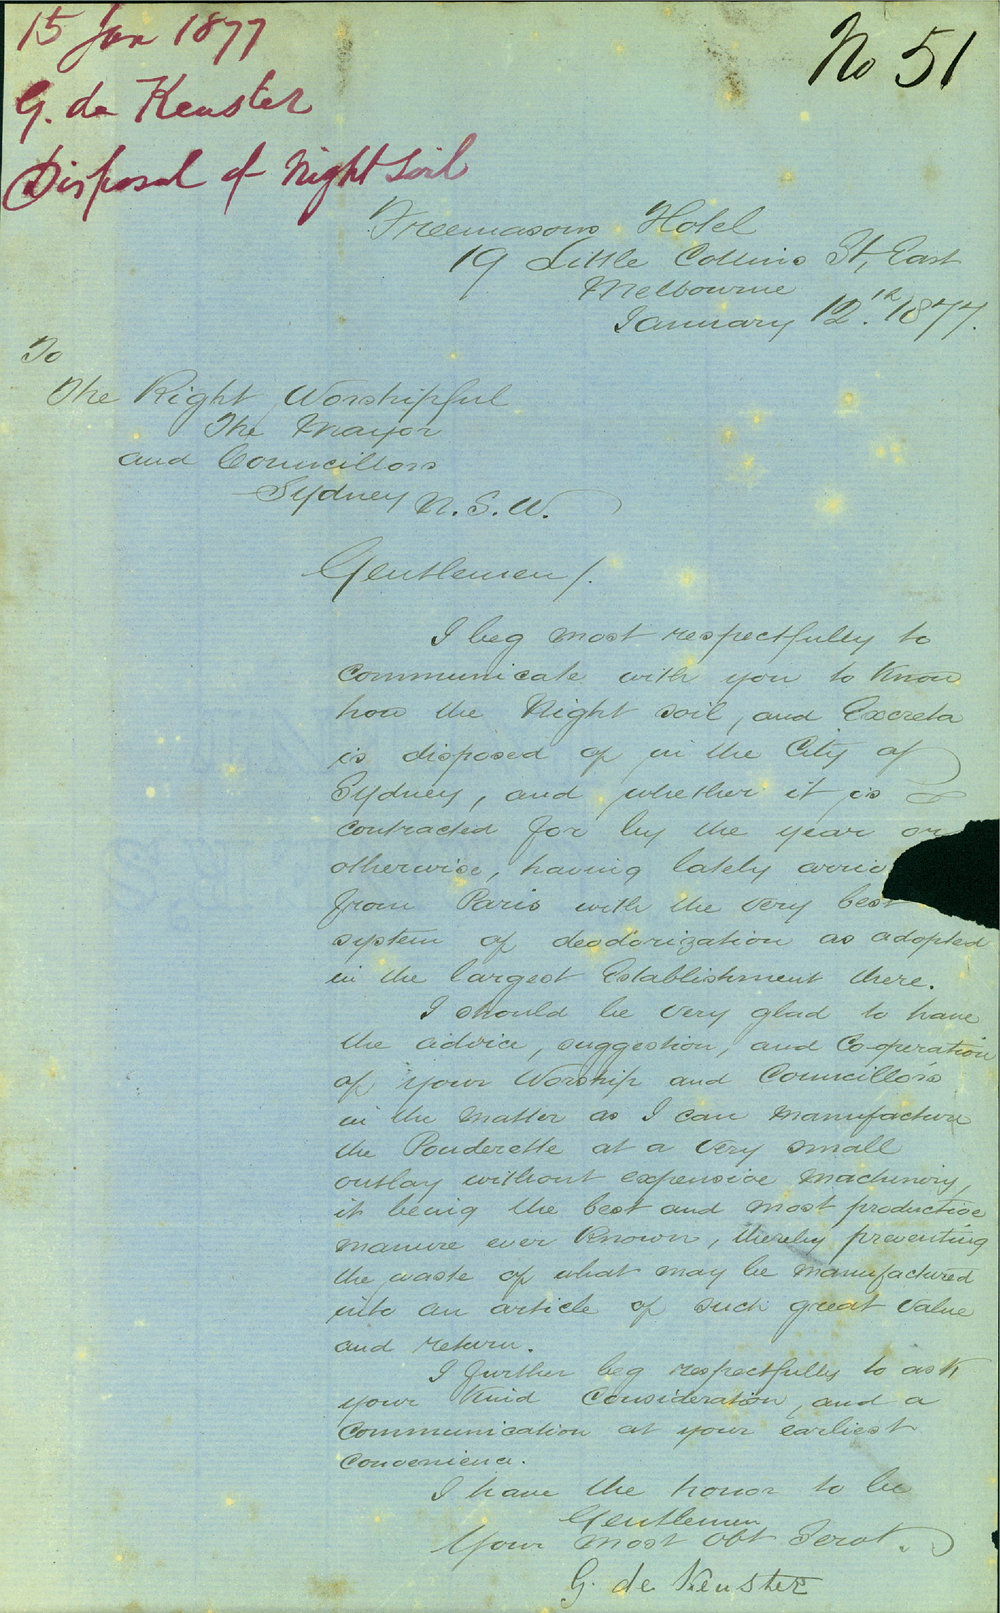 15 Jan 1877
No 51
G. de Keuster
Disposal of Night Soil
Freemasons Hotel
19 Little Collins St, East
Melbourne
January 12.th 1877.
To
The Right Worshipful
The Mayor
and Councillors
Sydney N.S.W.
Gentlemen/.
I beg most respectfully to
communicate with you to Know
how the Night soil, and Excreta
is disposed of in the City of
Sydney, and whether it is
contracted for by the year or
otherwise, having lately arriv
from Paris with the very best
system of deodorization as adopted
in the largest Establishment there.
I should be very glad to have
the advice, suggestion, and Co-operation
of your Worship and Councillors
in the matter as I can manufacture
the Pouderette at a very small
outlay without expensive machinery,
it being the best and most productive
manure ever Known, thereby preventing
the waste of what may be manufactured
into an article of such great value
and return.
I further beg respectfully to ask
your Kind Consideration, and a
Communication at your earliest
Convenience.
I have the honor to be
Gentlemen
Your most obt Servt.
G. de Keuster